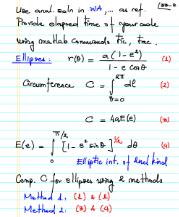 Use anal. soln in W/A, ... as ref.
Provide elapsed time of your code
using matlab commands tic, toc.
Ellipses: r(θ) = a(1-e²) / 1-e cosθ (1)
Circumference C = ∫_{θ=0}^{2π} dl (2)
C = 4aE(e) (3)
E(e) = ∫_0^{π/2} [1-e² sin²θ]^{1/2} dθ (4)
Elliptic int. of 2nd kind
Comp. C for ellipses using 2 methods
Method 1: (1) & (2)
Method 2: (3) & (4)